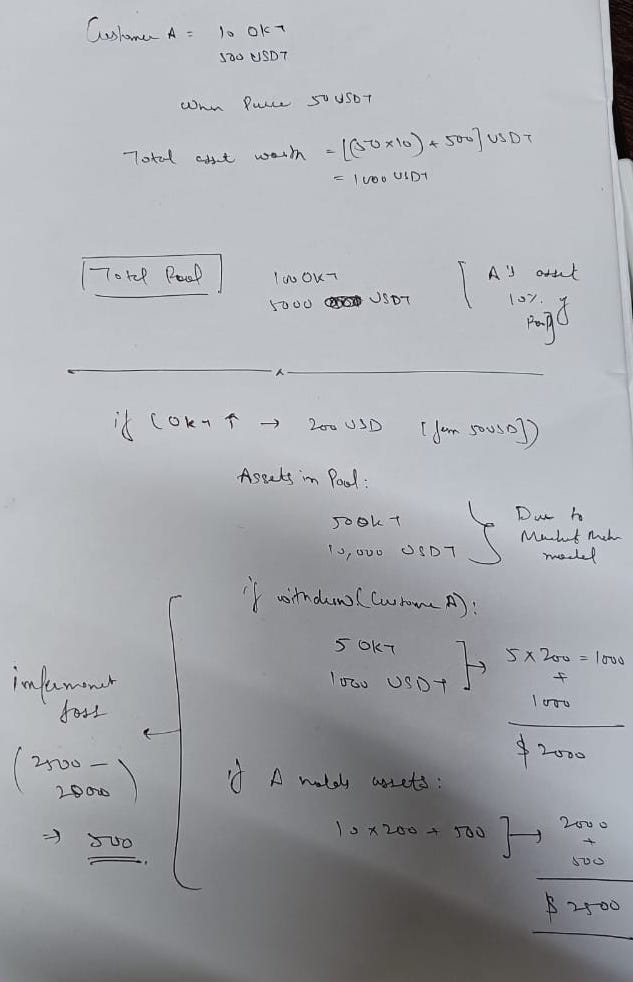 Customer A = 10 OKT
500 USDT
When Price 50 USDT
Total asset worth = [(50x10) + 500] USDT
= 1000 USDT
Total Pool
100 OKT
5000 USDT
A's asset
10% of
Pool
if (OKT ↑ → 200 USD [from 50USD])
Assets in Pool:
50 OKT
10,000 USDT
Due to
Market Maker
model
if withdraws (Customer A):
5 OKT
1000 USDT
5 x 200 = 1000
+
1000
$ 2000
impermanent
loss
(2500 -
2000)
⇒ 500
if A holds assets:
10 x 200 + 500
2000
+
500
$ 2500